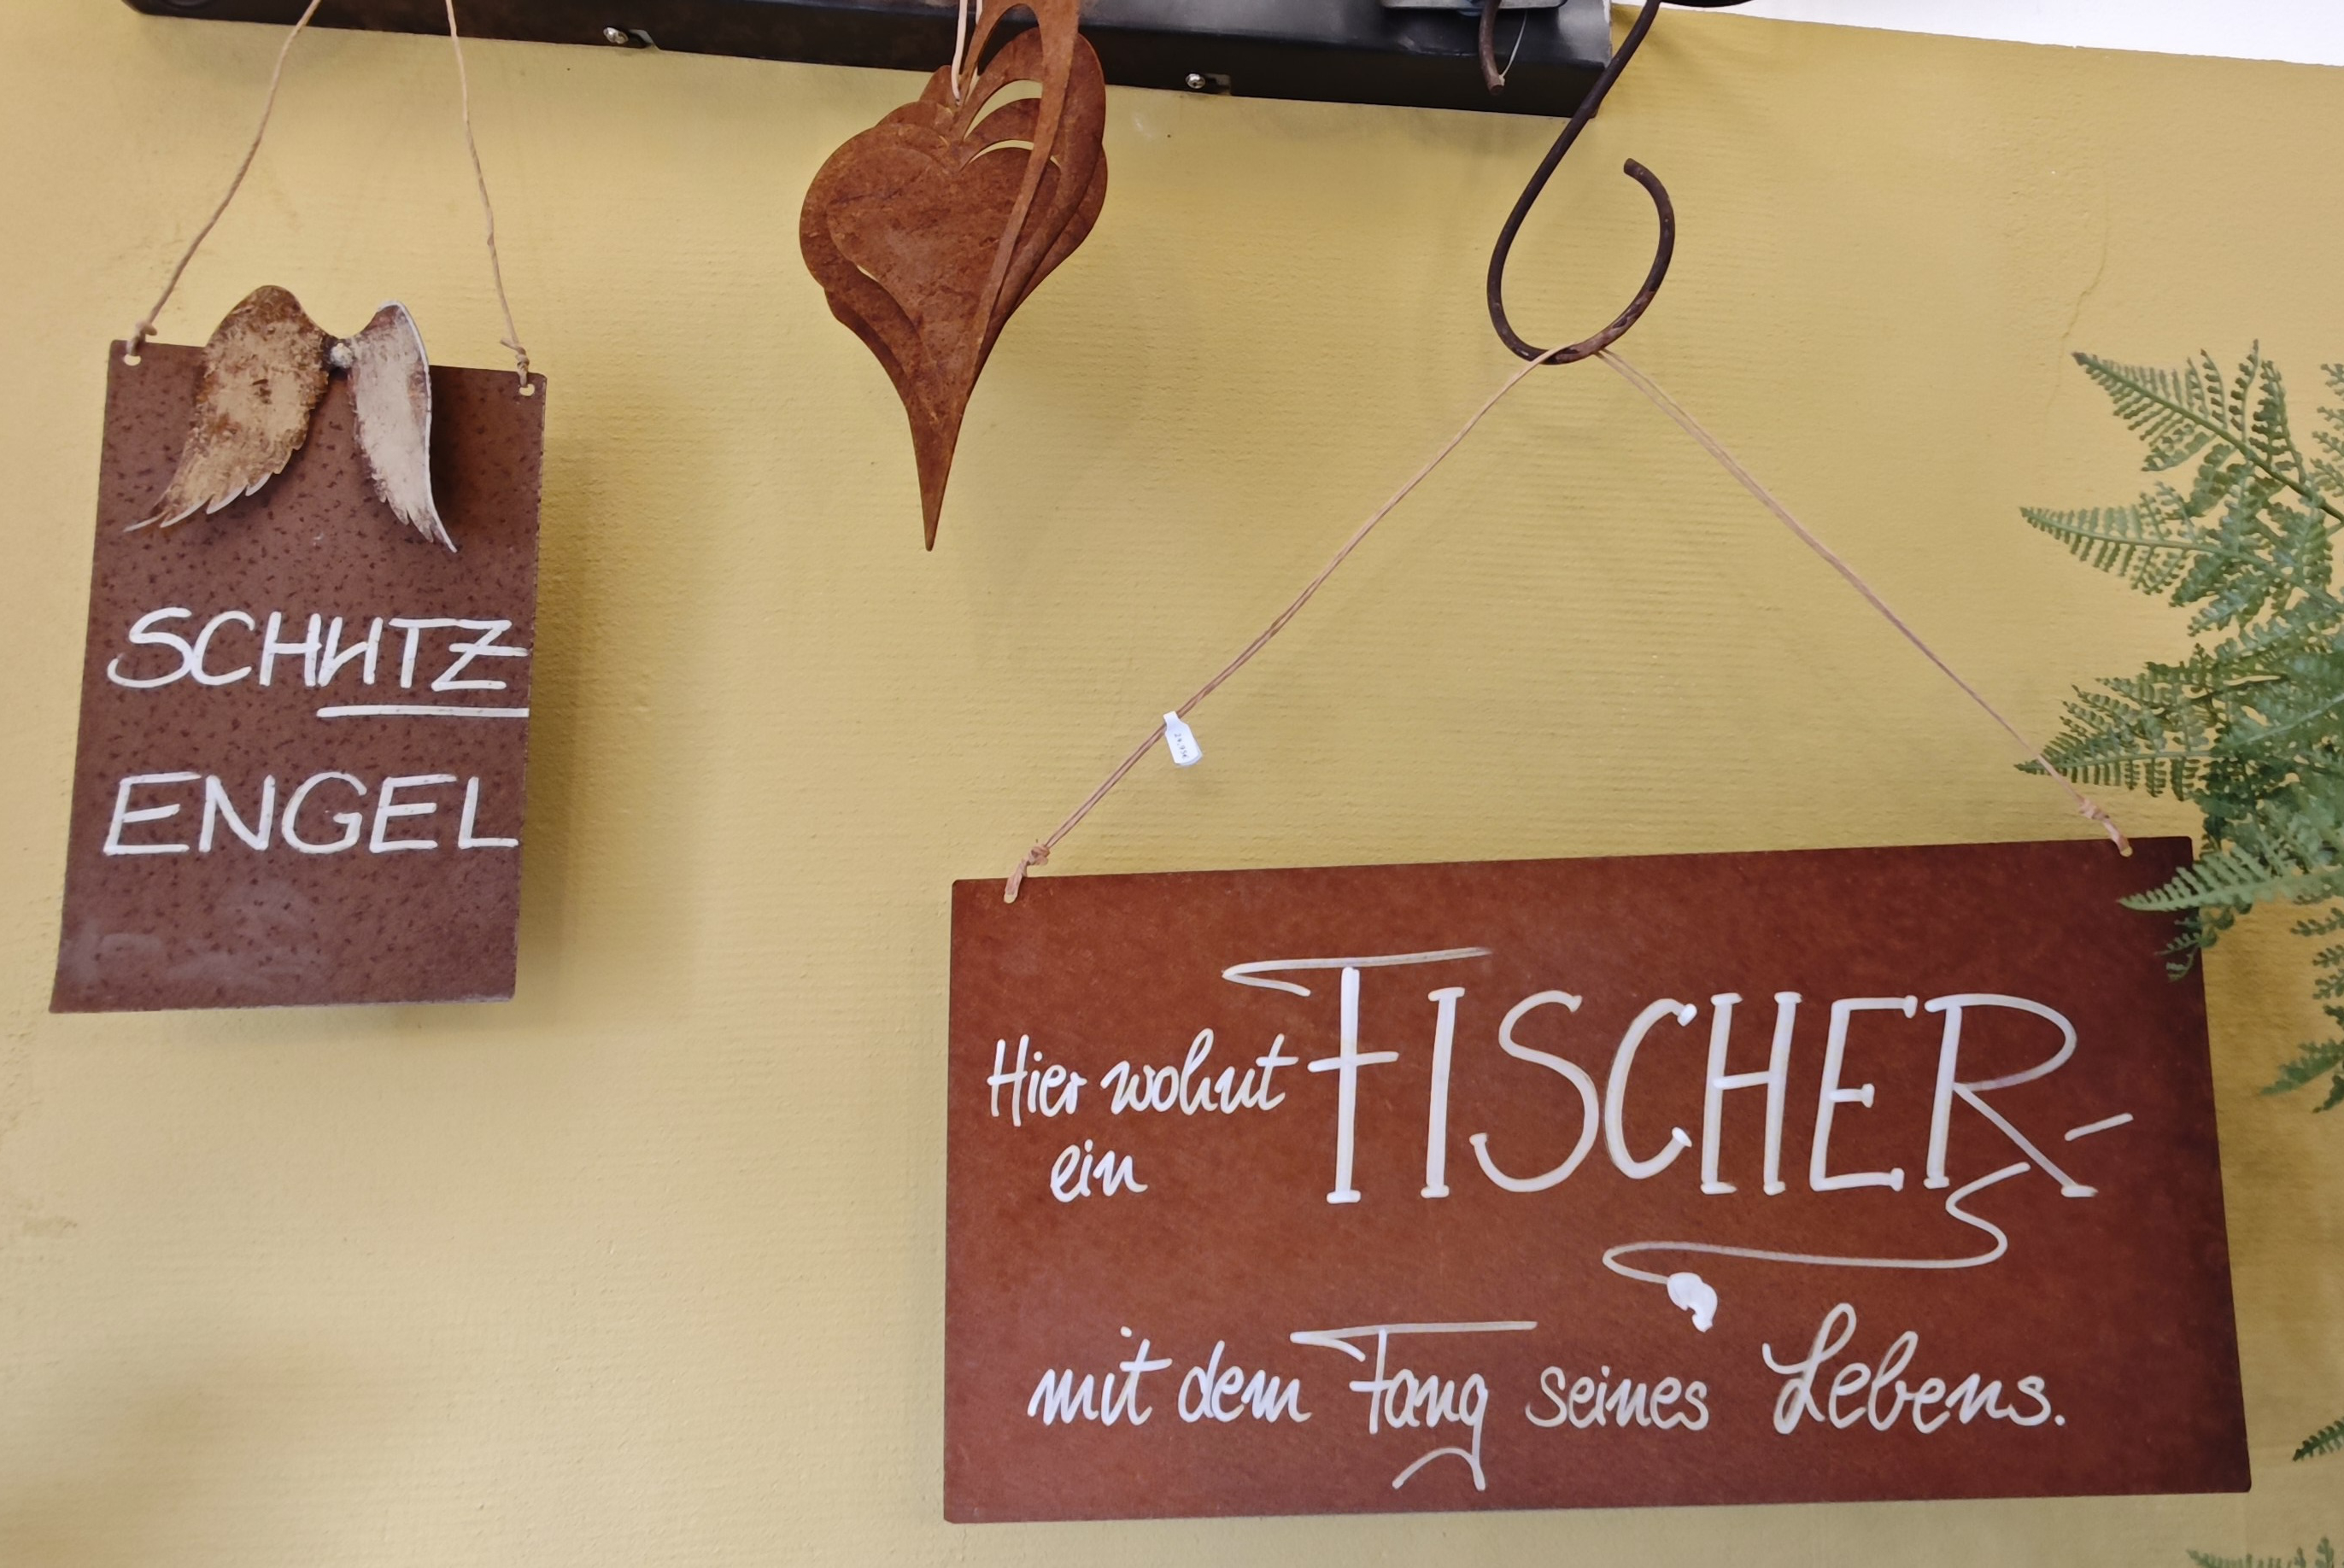 SCHUTZ
ENGEL
Hier wohnt FISCHER
ein
mit dem Fang seines Lebens.